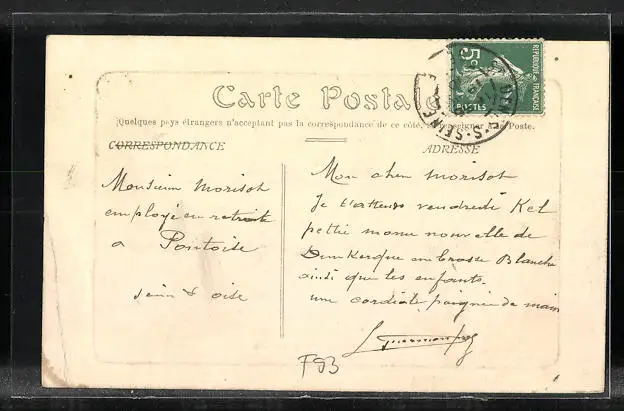 Carte Postale
Quelques pays étrangers n'acceptant pas la correspondance de ce côté, se renseigner à la Poste.
CORRESPONDANCE
ADRESSE
5c
POSTES
REPUBLIQUE FRANÇAISE
S-SEINE
Monsieur Morisot
employé en retraite
a Pontoise
Seine & oise
Mon cher Morisot
Je t'attends vendredi
petite nouvelle de
Dunkerque Blanche
ainsi que les enfants
une cordiale poignée de main
F93